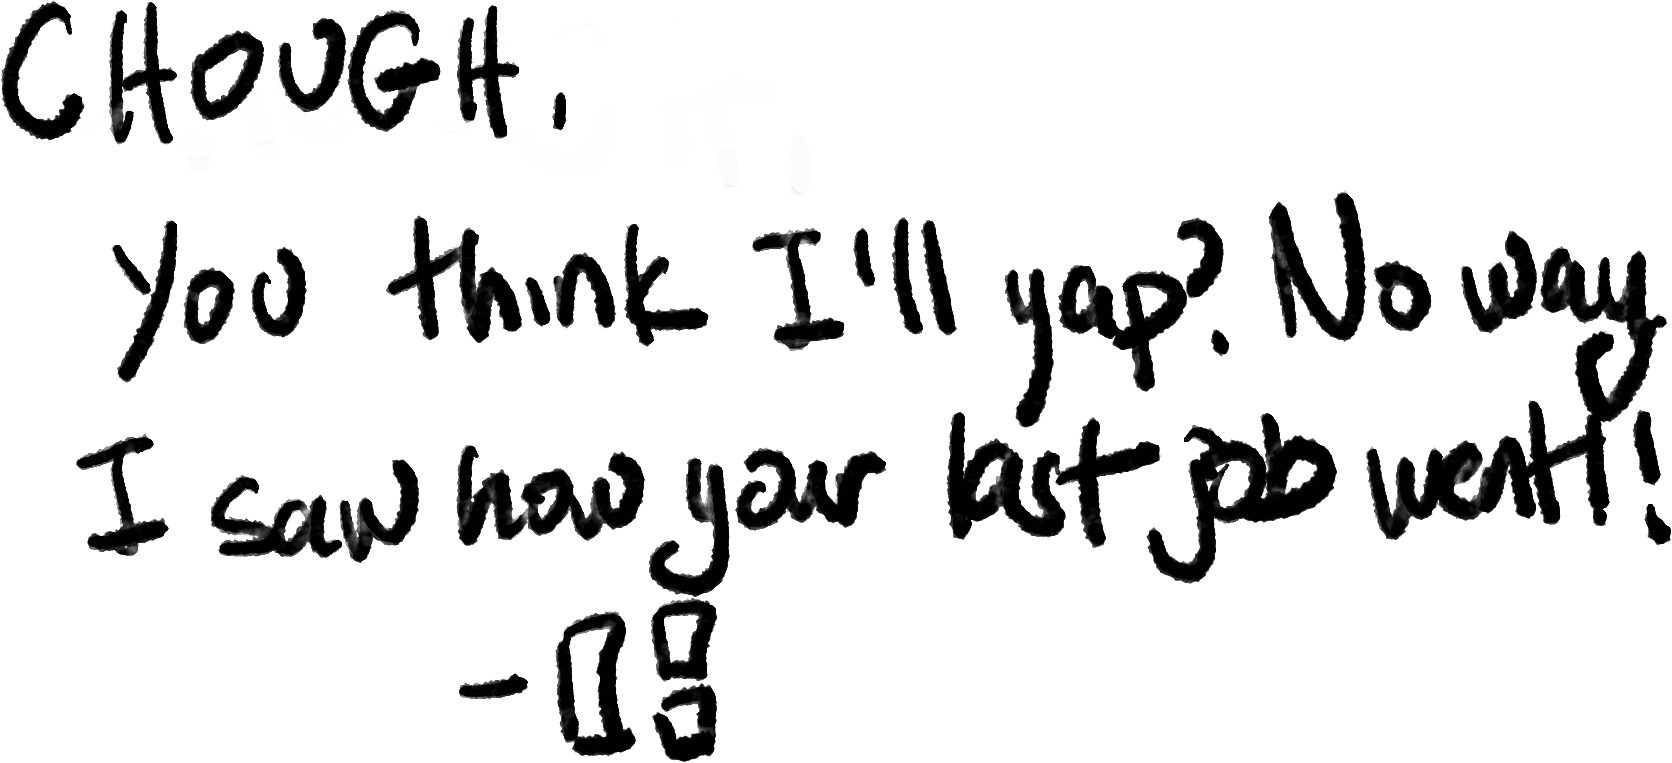 CHOUGH,
You think I'll yap? No way
I saw how your last job went!